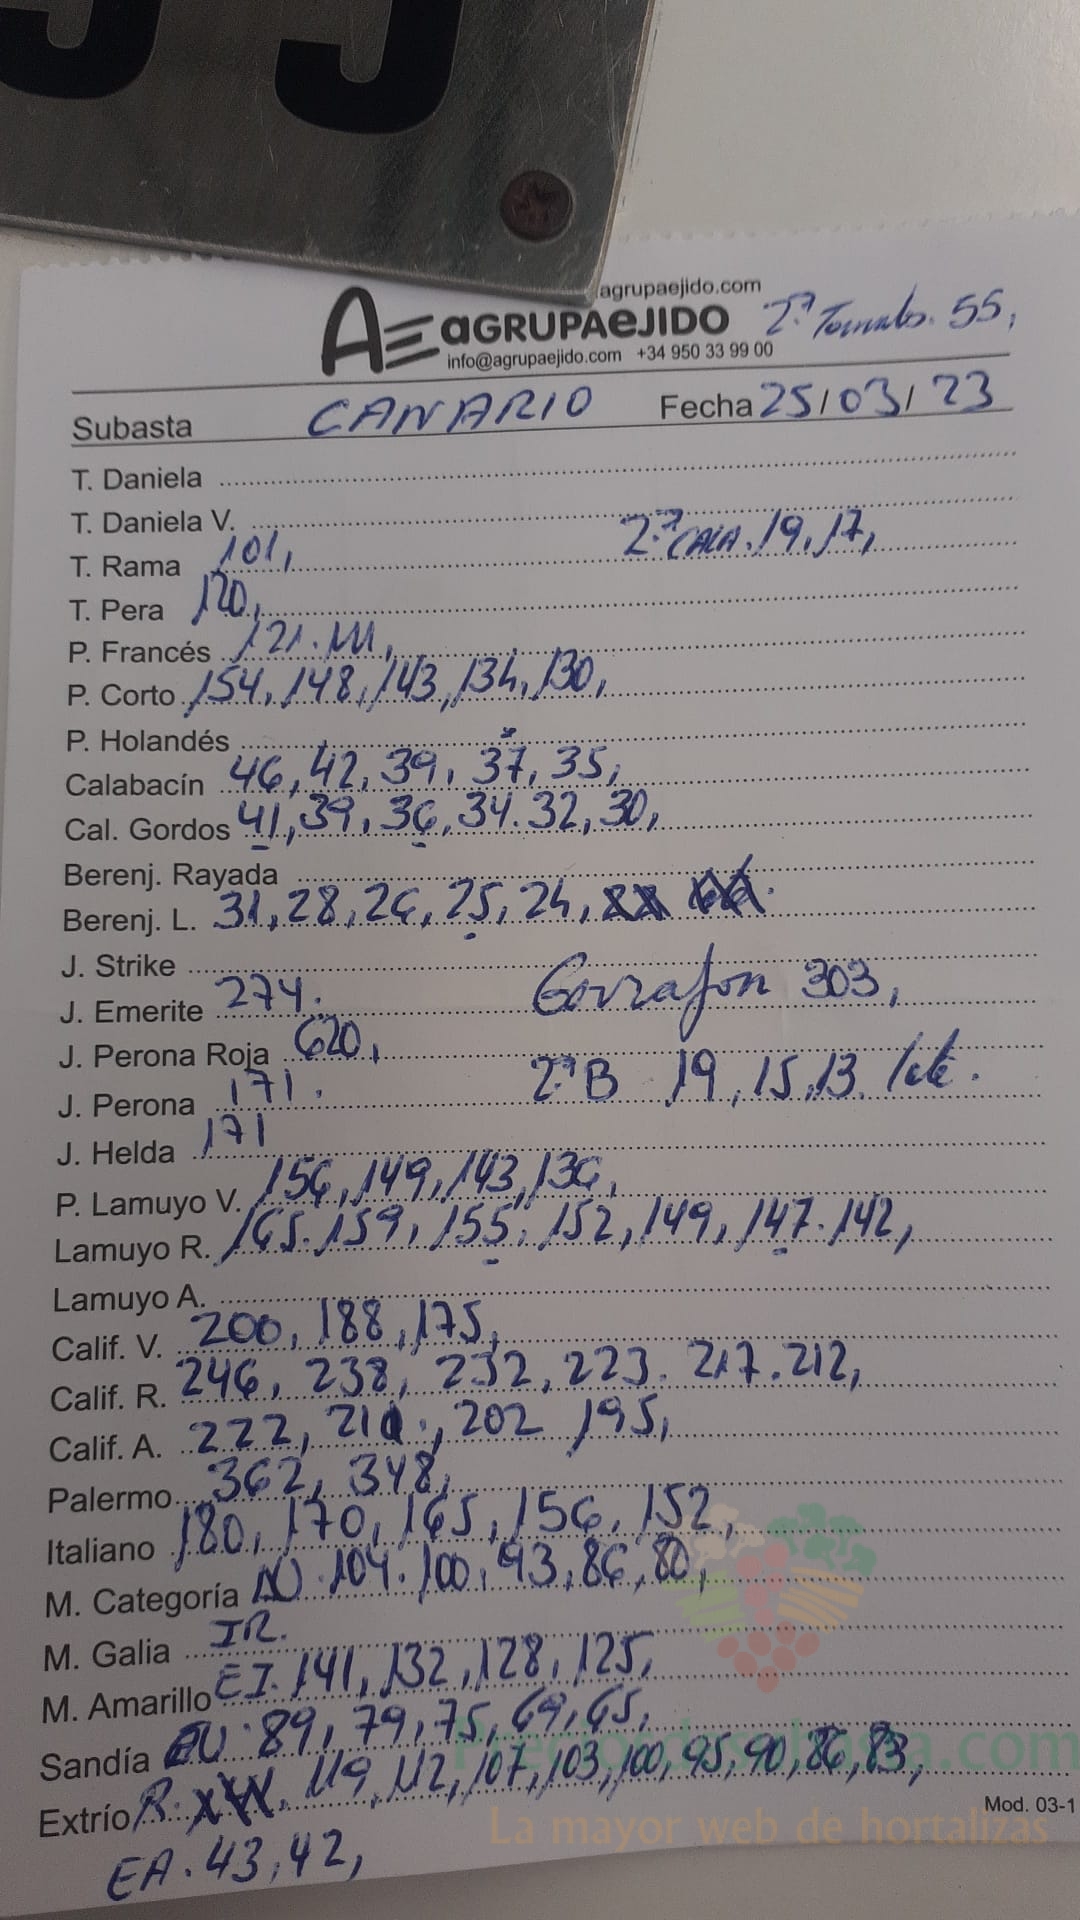 55
agrupaejido.com
AE aGRUPAeJIDO 2.ª Tomates. 55,
info@agrupaejido.com +34 950 33 99 00
Subasta CANARIO Fecha 25/03/23
T. Daniela
T. Daniela V.
T. Rama 101, 2.ª CALA. 19, 17,
T. Pera 120,
P. Francés 121. 111,
P. Corto 154, 148, 143, 134, 130,
P. Holandés
Calabacín 46, 42, 39, 37, 35,
Cal. Gordos 41, 39, 36, 34. 32, 30,
Berenj. Rayada
Berenj. L. 31, 28, 26, 25, 24,
J. Strike
J. Emerite 274. Garrafon 303,
J. Perona Roja 620,
J. Perona 171. 2.ª B 19, 15, 13.
J. Helda 171
P. Lamuyo V. 156, 149, 143, 136,
Lamuyo R. 165. 159, 155, 152, 149, 147. 142,
Lamuyo A.
Calif. V. 200, 188, 175,
Calif. R. 246, 238, 232, 223. 217. 212,
Calif. A. 222, 210, 202 195,
Palermo 362, 348,
Italiano 180, 170, 165, 156, 152,
M. Categoría AU. 104. 100, 93, 86, 80,
M. Galia IR.
M. Amarillo EJ. 141, 132, 128, 125,
Sandía EU. 89, 79, 75, 69, 65,
Extrío R. 119, 112, 107, 103, 100, 95, 90, 86, 83,
Mod. 03-1
La mayor web de hortalizas
EA. 43, 42,